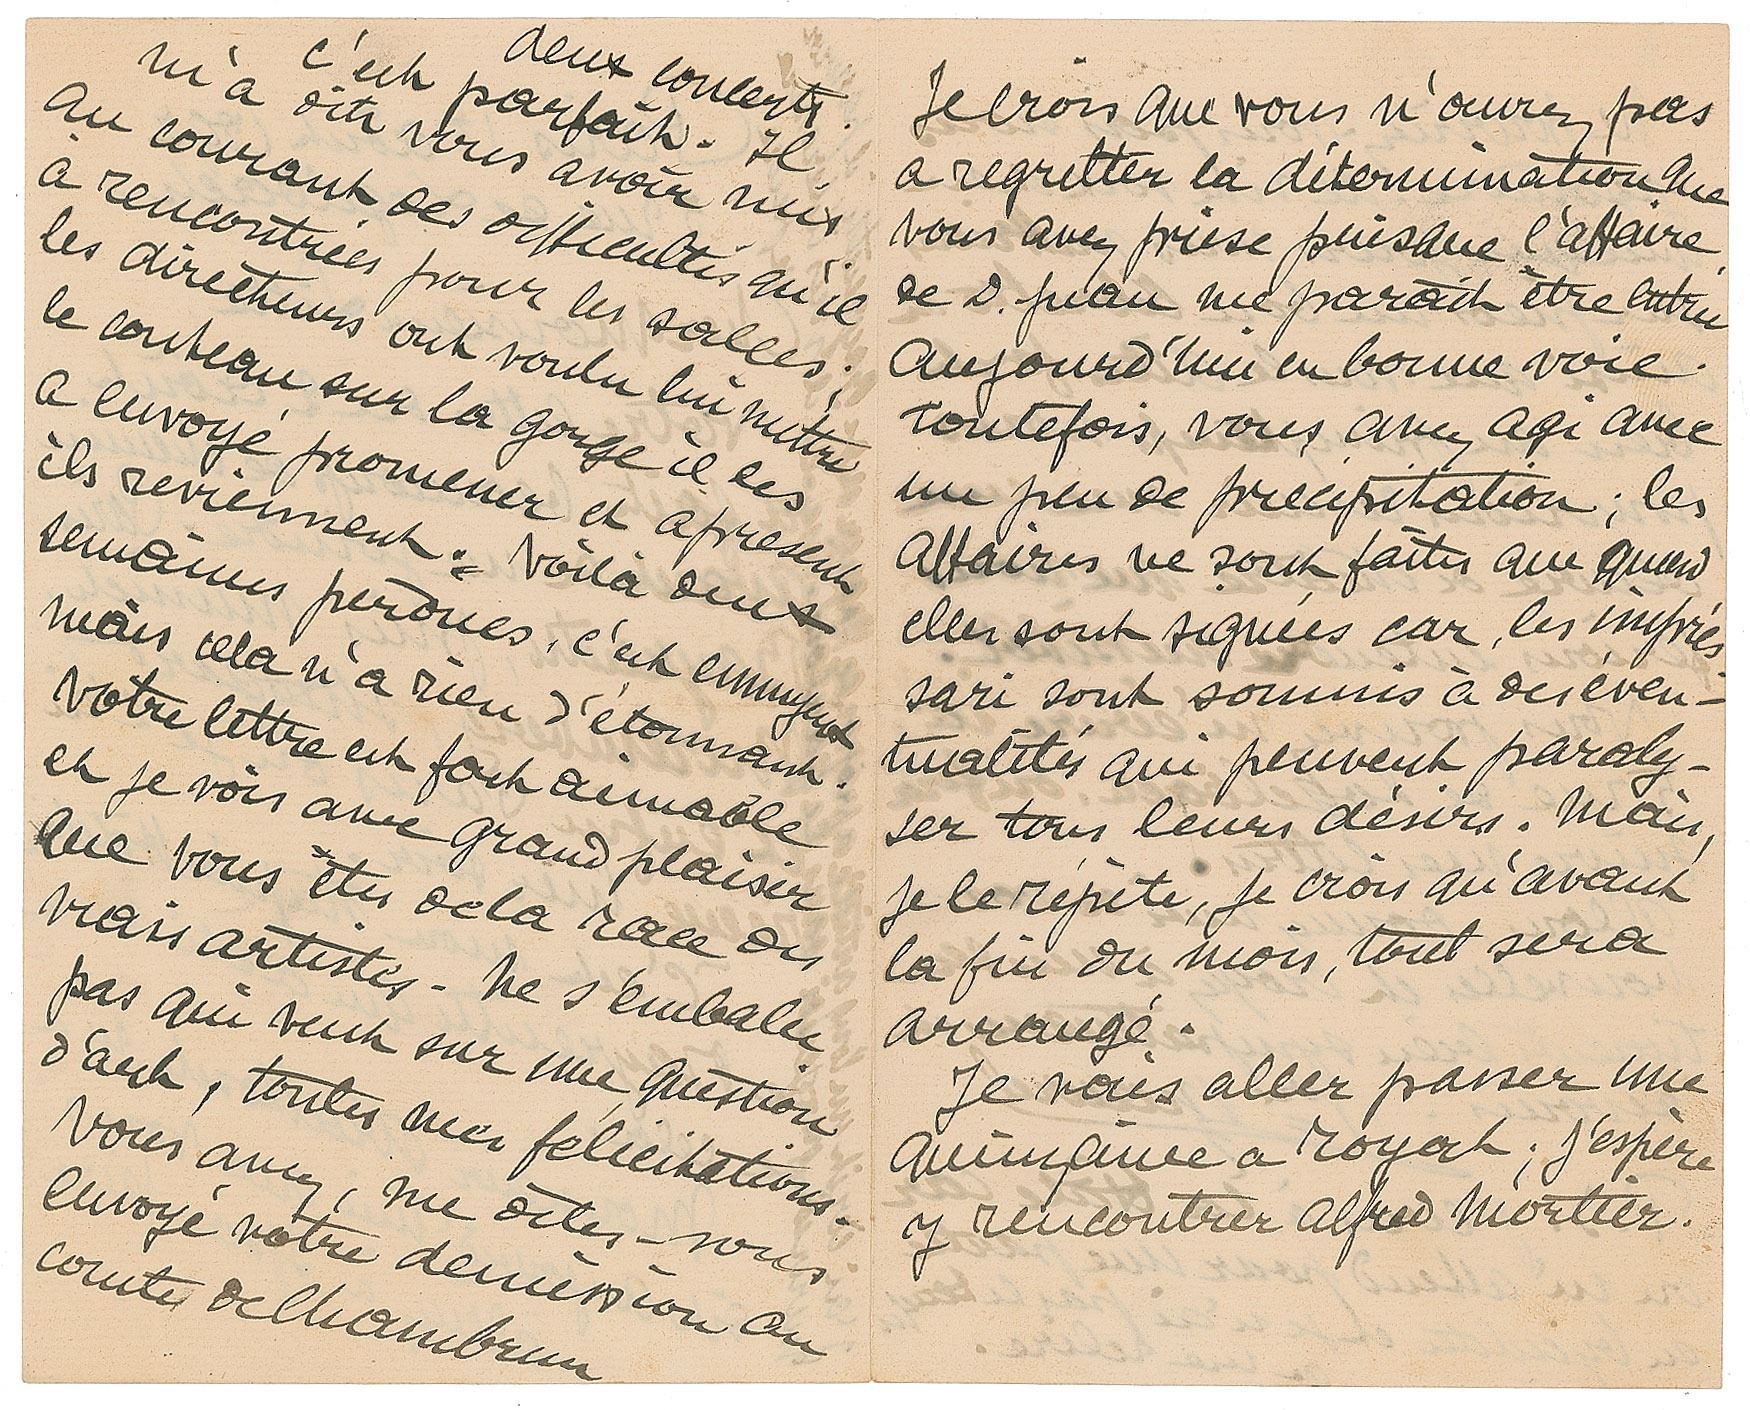 deux concerts.
c'est parfait. Il
m'a dit vous avoir mis
au courant des difficultés qu'il
a rencontrées pour les salles;
les directeurs ont voulu lui mettre
le couteau sur la gorge il les
a envoyé promener et apresent
ils reviennent. Voilà deux
semaines perdues, c'est ennuyeux
mais cela n'a rien d'étonnant.
Votre lettre est fort aimable
et je vois avec grand plaisir
que vous êtes de la race des
vrais artistes - Ne s'emballe
pas qui veut sur une question
d'art, toutes mes félicitations.
Vous avez, me dites-vous
envoyé votre démission au
comte de Chambrun
Je crois que vous n'aurez pas
a regretter la détermination que
vous avez priese puisque l'affaire
de D. Juan me parait être entrée
aujourd'hui en bonne voie.
Toutefois, vous avez agi avec
un peu de précipitation; les
affaires ne sont faites que quand
elles sont signées car, les imprés
sari sont soumis à des éven-
tualités qui peuvent paraly-
ser tous leurs désirs. Mais,
je le répète, je crois qu'avant
la fin du mois, tout sera
arrangé.
Je vais aller passer une
quinzaine a Royat; j'espère
y rencontrer Alfred Mortier.